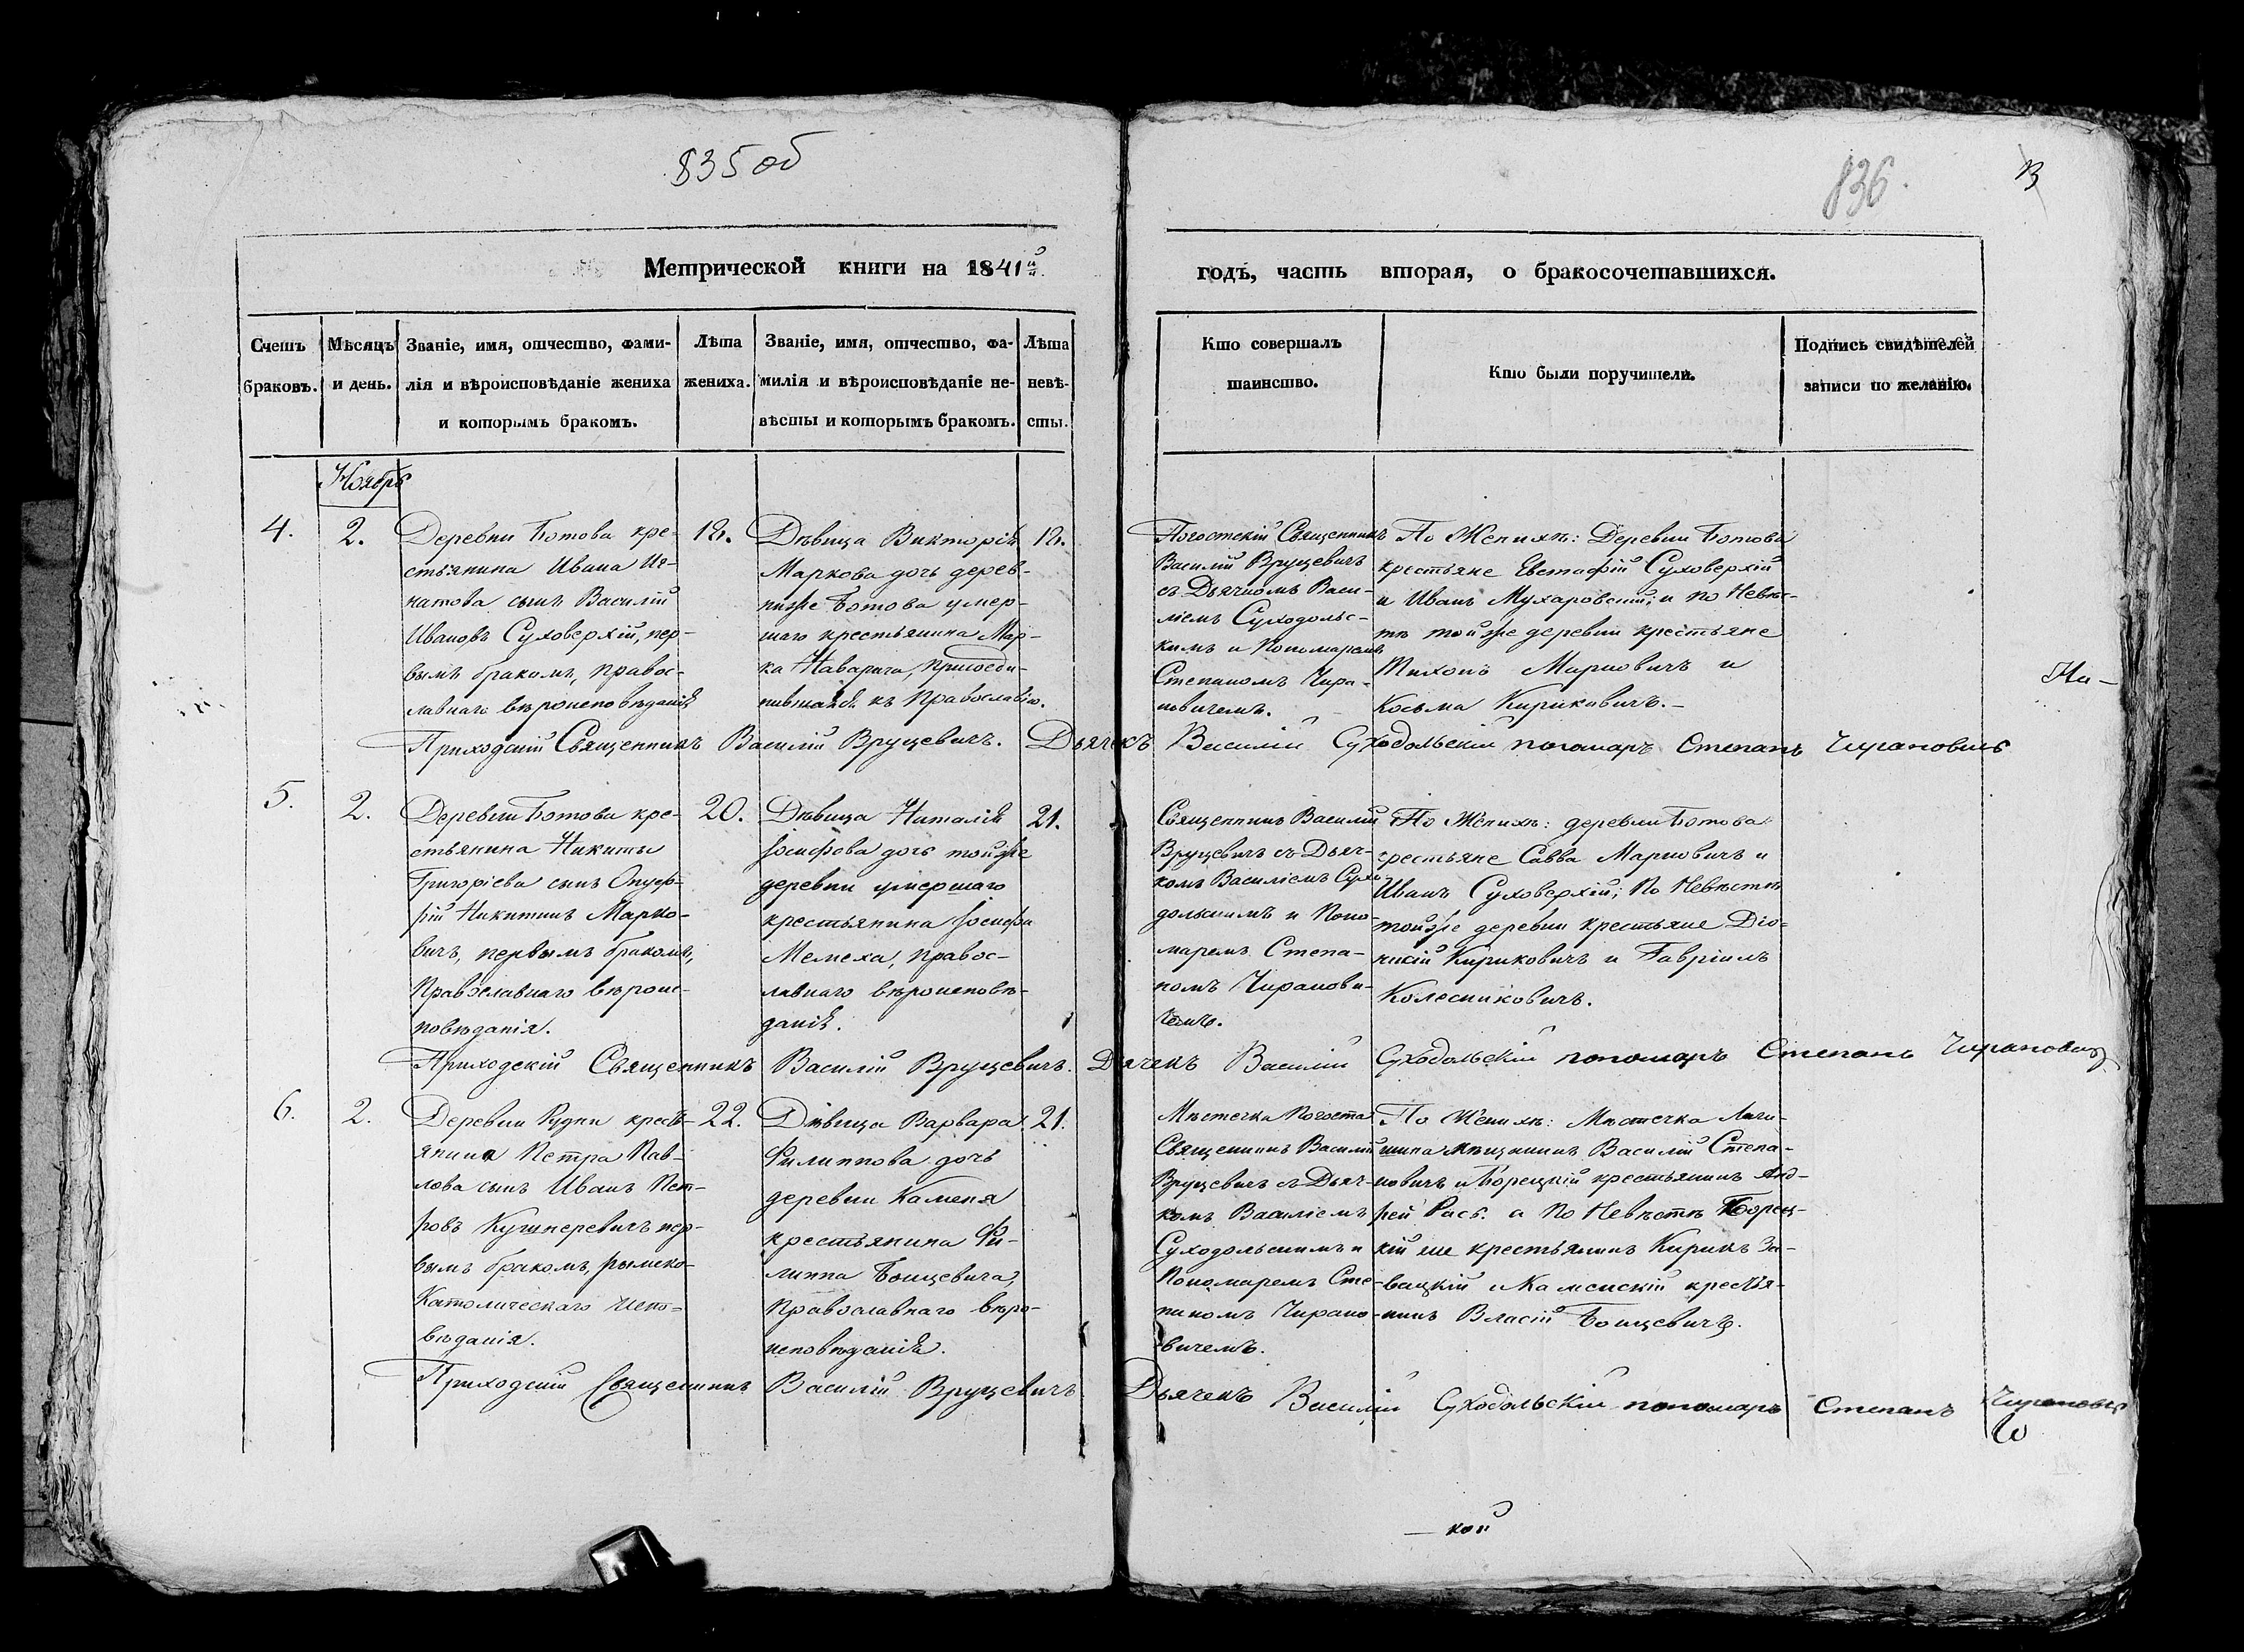 835 об
836.
Метрической книги на 1841й
годъ, часть вторая, о бракосочетавшихся.
Счетъ браковъ.
Мѣсяцъ и день.
Званіе, имя, отчество, фами-
лія и вѣроисповѣданіе жениха
и которымъ бракомъ.
Лѣта
жениха.
Званіе, имя, отчество, фа-
милія и вѣроисповѣданіе не-
вѣсты и которымъ бракомъ.
Лѣта
невѣ-
сты.
Кто совершалъ
таинство.
Кто были поручители.
Подпись свидѣтелей
записи по желанію.
Ноябрь
4.
2.
Деревни Ботова кре-
стьянина Ивана Иг-
натова сынъ Василій
Ивановъ Суховерхій, пер-
вымъ бракомъ, правос-
лавнаго вѣроисповѣданія
18.
Дѣвица Викторія
Маркова дочь дерев-
ниже Ботова умер-
шаго крестьянина Мар-
ка Наварича, присоеди-
нившаяся къ Православію.
18.
Погостскій Священникъ
Василій Вруцевичъ
съ Дьячкомъ Васи-
ліемъ Суходольс-
кимъ и Пономаремъ
Степаномъ Чира-
новичемъ.
По Женихѣ: Деревни Ботова
крестьяне Евстафій Суховерхій
и Иванъ Мухаровскій; и по Невѣс-
тѣ той же деревни крестьяне
Тихонъ Марковичъ и
Косьма Кириковичъ.-
На-
Приходскій Священникъ Василій Вруцевичъ. Дьячекъ Василій Суходольскій пономаръ Степанъ Чирановичъ
5.
2.
Деревни Ботова кре-
стьянина Никиты
Григоріева сынъ Онуф-
рій Никитинъ Марко-
вичъ, первымъ бракомъ,
Православнаго вѣроис-
повѣданія.
20.
Дѣвица Наталія
Іосифова дочь тойже
деревни умершаго
крестьянина Іосифа
Мемеха, правос-
лавнаго вѣроисповѣ-
данія.
21.
Священникъ Василій
Вруцевичъ съ Дьяч-
комъ Василіемъ Сухо-
дольскимъ и Поно-
маремъ Степа-
номъ Чиранови-
чемъ.
По Женихѣ: деревни Ботова
крестьяне Савва Марковичъ и
Иванъ Суховерхій; по Невѣстѣ
тойже деревни крестьяне Діо-
нисій Кириковичъ и Гавріилъ
Колесниковичъ.
Приходскій Священникъ Василій Вруцевичъ. Дьячекъ Василій Суходольскій пономаръ Степанъ Чирановичъ
6.
2.
Деревни Рудни кресть-
янина Петра Пав-
лова сынъ Иванъ Пет-
ровъ Кушнеревичъ пер-
вымъ бракомъ, римско-
Католическаго испо-
вѣданія.
22.
Дѣвица Варвара
Филиппова дочь
деревни Каменя
крестьянина Фи-
липпа Боищевича,
Православнаго вѣро-
исповѣданія.
21.
Мѣстечка Погоста
Священникъ Василій
Вруцевичъ съ Дьяч-
комъ Василіемъ
Суходольскимъ и
Пономаремъ Сте-
паномъ Чирано-
вичемъ.
По Женихѣ: Мѣстечка Логи-
шина мѣщанинъ Василій Степа-
новичъ и Борецкій крестьянинъ Анд-
рей Рась. а по Невѣстѣ Борец-
кій же крестьянинъ Кирикъ За-
вацкій и Каменскій крестья-
нинъ Власій Боищевичъ.
Приходскій Священникъ Василій Вруцевичъ Дьячекъ Василій Суходольскій пономаръ Степанъ Чирановичъ
кой